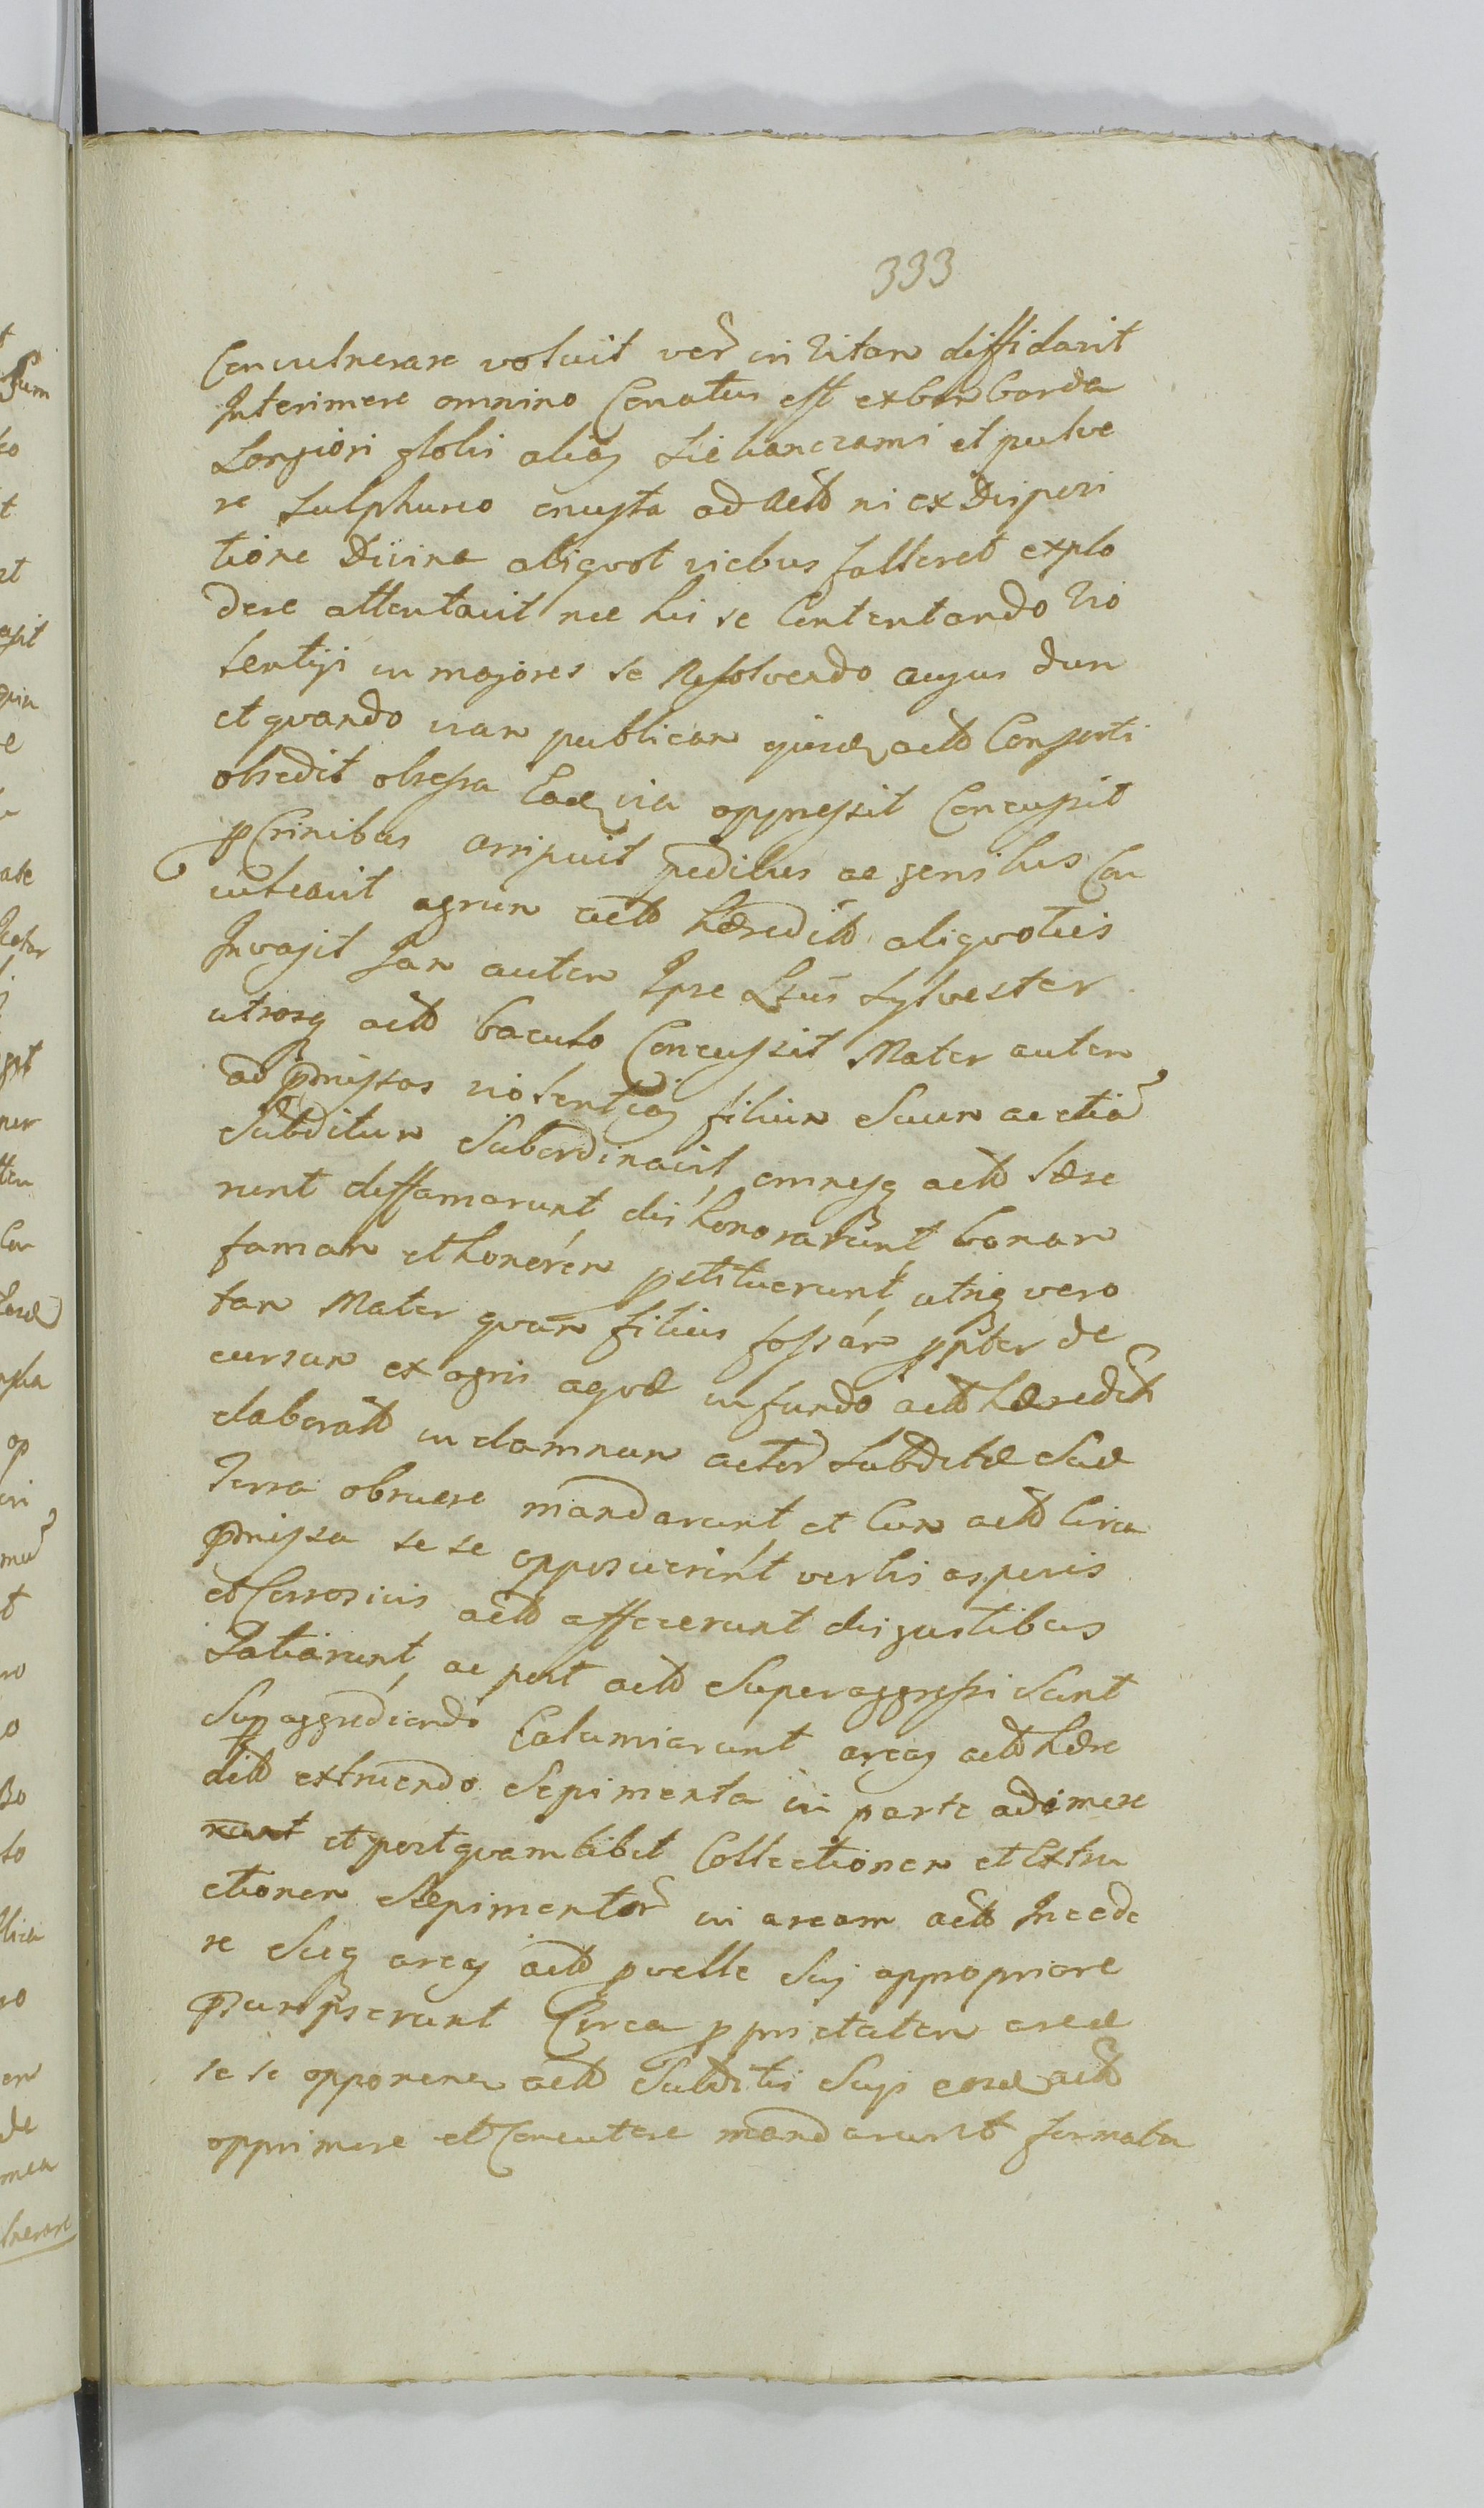 333
Convulnerare voluit ver in Vitam diffidavit
Interimere omnino Conatus est exbombarda
Longiori globis alias siekanczami et pulve
re sulphureo onusta ad Actt ni ex Disposi
tione Divina aliquot vicbus falleret explo
dere attentavit nec his se Contentando Vio
lentijs in majores se Resolvendo ausus dum
et quando viam publicam ejusdem actt Consorti
obsedit obsessa Eadem via oppressit Concussit
p Crinibus arripuit pedibus ac genibus Con
culcavit agrum actt hæreditt aliquoties
Invasit Jam autem Ipse Lsus Sylvester
utrosq actt baculo Concussit Mater autem
ad pmissas violentias filium Suum ac etia
Subditum Subordinavit, omnesq actt læse
runt diffamarunt dishonorarunt bonam
famam et honorem pstituerunt, utriq vero
tam Mater quam filius fossam ppter de
cursum ex agris aquæ in fundo actt hæreditt
elaboratt in damnum actor Subditæ Suæ
Terra obruere mandarunt et Cum actt Circa
pmissa se se opposuerint verbis asperis
et Corrosivis actt affecerunt disgustibus
Satiarunt, ac post actt Superaggressi Sunt
Supaggrediendo Calumiarunt areas actt hære
ditt extruendo Sepimenta in parte adimere
et postquamlibet Collectionem et Extru
ctionem Sæpimentor in aream actt Incede
re Suq areas actt pvelle Suis appropriare
psumpserunt Circa pprietatem areæ
se se opponen actt Subditis Suis eosd actt
opprimere et Concutere mandarunt formata